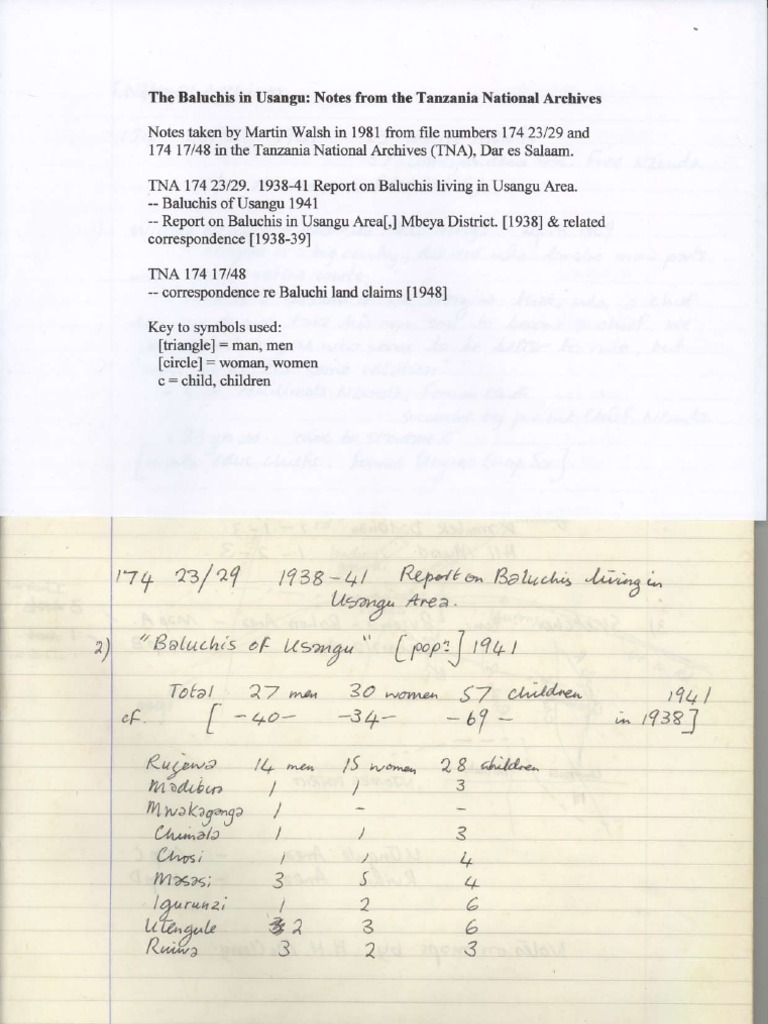 The Baluchis in Usangu: Notes from the Tanzania National Archives
Notes taken by Martin Walsh in 1981 from file numbers 174 23/29 and
174 17/48 in the Tanzania National Archives (TNA), Dar es Salaam.
TNA 174 23/29. 1938-41 Report on Baluchis living in Usangu Area.
-- Baluchis of Usangu 1941
-- Report on Baluchis in Usangu Area[,] Mbeya District. [1938] & related
correspondence [1938-39]
TNA 174 17/48
-- correspondence re Baluchi land claims [1948]
Key to symbols used:
[triangle] = man, men
[circle] = woman, women
c = child, children
174 23/29 1938-41 Report on Baluchis living in
Usangu Area.
2) "Baluchis of Usangu" [popn] 1941
Total 27 men 30 women 57 children 1941
cf. [ -40- -34- -69- in 1938]
Rujewa 14 men 15 women 28 children
Madibira 1 1 3
Mwakaganga 1 - -
Chimala 1 1 3
Chosi 1 4
Masasi 3 5 4
Igurunzi 1 2 6
Utengule 2 3 6
Ruiwa 3 2 3